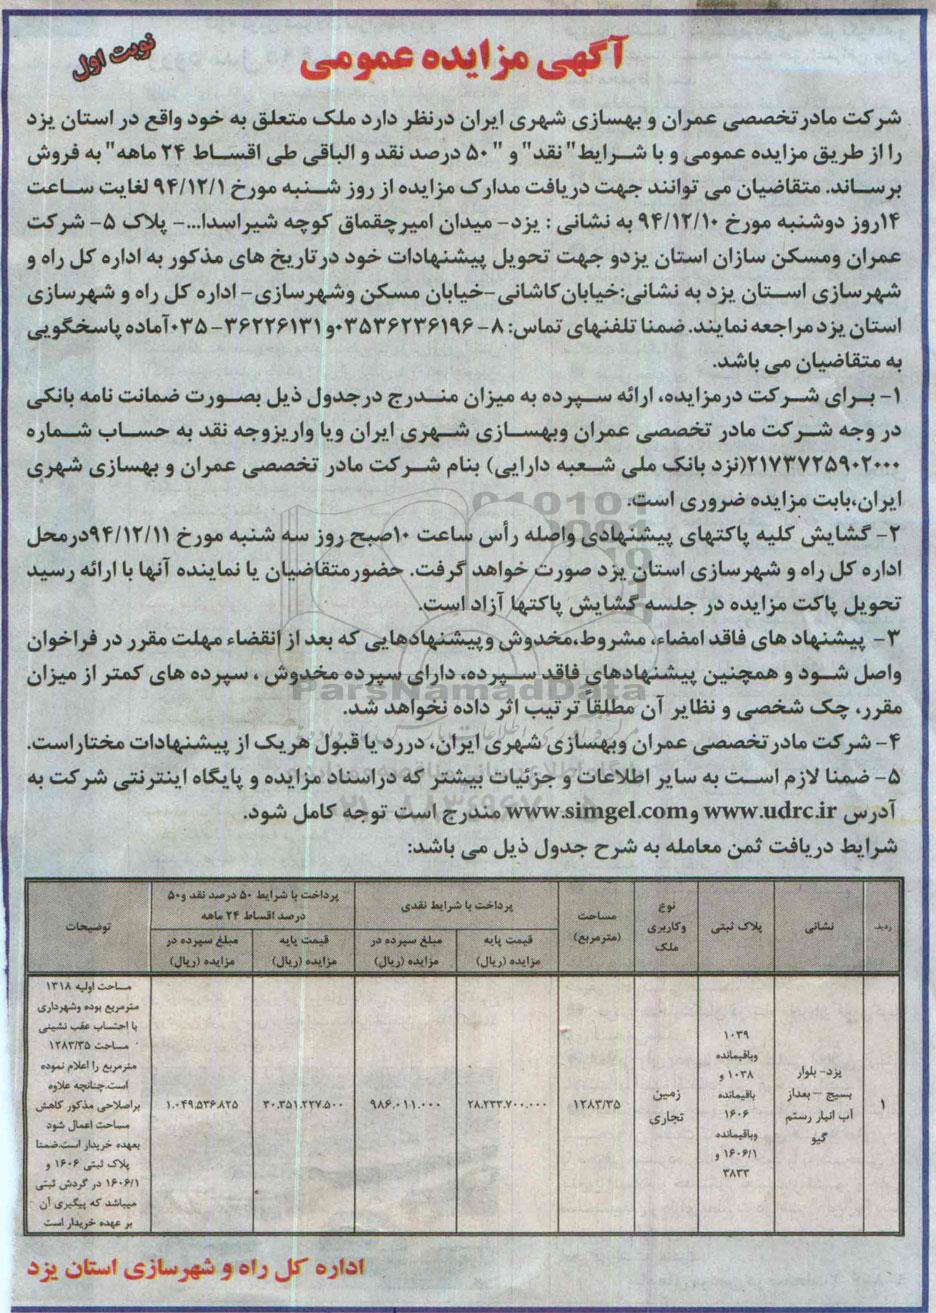 آگهی مزایده عمومی
نوبت اول
شرکت مادرتخصصی عمران و بهسازی شهری ایران درنظر دارد ملک متعلق به خود واقع در استان یزد
را از طریق مزایده عمومی و با شرایط" نقد" و " ۵۰ درصد نقد و الباقی طی اقساط ۲۴ ماهه" به فروش
برساند. متقاضیان می توانند جهت دریافت مدارک مزایده از روز شنبه مورخ ۹۴/۱۲/۱ لغایت ساعت
۱۴روز دوشنبه مورخ ۹۴/۱۲/۱۰ به نشانی : یزد- میدان امیرچقماق کوچه شیراسدا...- پلاک ۵- شرکت
عمران ومسکن سازان استان یزدو جهت تحویل پیشنهادات خود درتاریخ های مذکور به اداره کل راه و
شهرسازی استان یزد به نشانی:خیابان کاشانی-خیابان مسکن وشهرسازی- اداره کل راه و شهرسازی
استان یزد مراجعه نمایند. ضمنا تلفنهای تماس: ۸-۰۳۵۳۶۲۳۶۱۹۶و ۳۶۲۲۶۱۳۱-۰۳۵آماده پاسخگویی
به متقاضیان می باشد.
۱- برای شرکت درمزایده، ارائه سپرده به میزان مندرج درجدول ذیل بصورت ضمانت نامه بانکی
در وجه شرکت مادر تخصصی عمران وبهسازی شهری ایران ویا واریزوجه نقد به حساب شماره
۲۱۷۳۷۲۵۹۰۲۰۰۰(نزد بانک ملی شعبه دارایی) بنام شرکت مادر تخصصی عمران و بهسازی شهری
ایران،بابت مزایده ضروری است.
۲- گشایش کلیه پاکتهای پیشنهادی واصله رأس ساعت ۱۰صبح روز سه شنبه مورخ ۹۴/۱۲/۱۱درمحل
اداره کل راه و شهرسازی استان یزد صورت خواهد گرفت. حضورمتقاضیان یا نماینده آنها با ارائه رسید
تحویل پاکت مزایده در جلسه گشایش پاکتها آزاد است.
۳- پیشنهاد های فاقد امضاء، مشروط،مخدوش وپیشنهادهایی که بعد از انقضاء مهلت مقرر در فراخوان
واصل شود و همچنین پیشنهادهای فاقد سپرده، دارای سپرده مخدوش ، سپرده های کمتر از میزان
مقرر، چک شخصی و نظایر آن مطلقاً ترتیب اثر داده نخواهد شد.
۴- شرکت مادرتخصصی عمران وبهسازی شهری ایران، دررد یا قبول هریک از پیشنهادات مختاراست.
۵- ضمنا لازم است به سایر اطلاعات و جزئیات بیشتر که دراسناد مزایده و پایگاه اینترنتی شرکت به
آدرس www.udrc.ir وwww.simgel.com مندرج است توجه کامل شود.
شرایط دریافت ثمن معامله به شرح جدول ذیل می باشد:
ردیف
نشانی
پلاک ثبتی
نوع
وکاربری
ملک
مساحت
(مترمربع)
پرداخت با شرایط نقدی
قیمت پایه
مزایده (ریال)
مبلغ سپرده در
مزایده (ریال)
پرداخت با شرایط ۵۰ درصد نقد و۵۰
درصد اقساط ۲۴ ماهه
قیمت پایه
مزایده (ریال)
مبلغ سپرده در
مزایده (ریال)
توضیحات
۱
یزد- بلوار
بسیج – بعداز
آب انبار رستم
گیو
۱۰۳۹
وباقیمانده
۱۰۳۸ و
باقیمانده
۱۶۰۶
وباقیمانده
۱۶۰۶/۱ و
۳۸۳۳
زمین
تجاری
۱۲۸۳/۳۵
۲۸.۲۳۳.۷۰۰.۰۰۰
۹۸۶.۰۱۱.۰۰۰
۳۰.۳۵۱.۲۲۷.۵۰۰
۱.۰۴۹.۵۳۶.۸۲۵
مساحت اولیه ۱۳۱۸
مترمربع بوده وشهرداری
با احتساب عقب نشینی
مساحت ۱۲۸۳/۳۵
مترمربع را اعلام نموده
است.چنانچه علاوه
براصلاحی مذکور کاهش
مساحت اعمال شود
بعهده خریدار است.ضمنا
پلاک ثبتی ۱۶۰۶ و
۱۶۰۶/۱ در گردش ثبتی
میباشد که پیگیری آن
بر عهده خریدار است
اداره کل راه و شهرسازی استان یزد
ParsNamadData